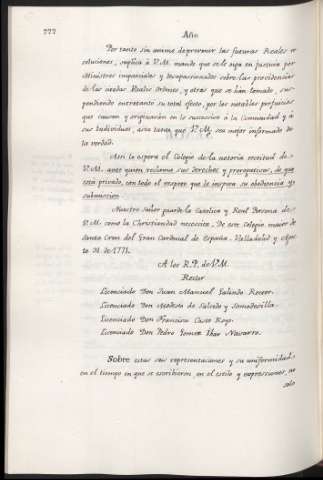 777
Año
Por tanto sin animo de prevenir las futuras Reales re
soluciones, suplica á V. M. mande que se le oiga en justicia por
Ministros imparciales y desapasionados sobre las providencias
de las citadas Reales ordenes, y otras que se han tomado, sus
pendiendo entretanto su total efecto, por los notables perjuicios
que causan y originarán en lo succesivo á la Comunidad y á
sus Individuos, asta tanto que V. M. sea mejor informado de
la verdad.
Asi lo espera el Colegio de la notoria rectitud de
V. M. ante quien reclama sus derechos y prerogativas, de que
está privado, con todo el respeto que le inspira su obediencia y
submision.
Nuestro Señor guarde la Catolica y Real Persona de
V. M. como la Christiandad necesita. De este Colegio mayor de
Santa Cruz del Gran Cardenal de España. Valladolid y Agos
to 31 de 1771.
A los R. P. de V. M.
Rector
Licenciado Don Juan Manuel Galindo Rector.
Licenciado Don Modesto de Salcedo y Somodevilla.
Licenciado Don Francisco Cayo Rojo.
Licenciado Don Pedro Gomez Ibar Navarro.
Sobre estas seis representaciones y su uniformidad
en el tiempo en que se escribieron, en el estilo y expresiones, no
solo